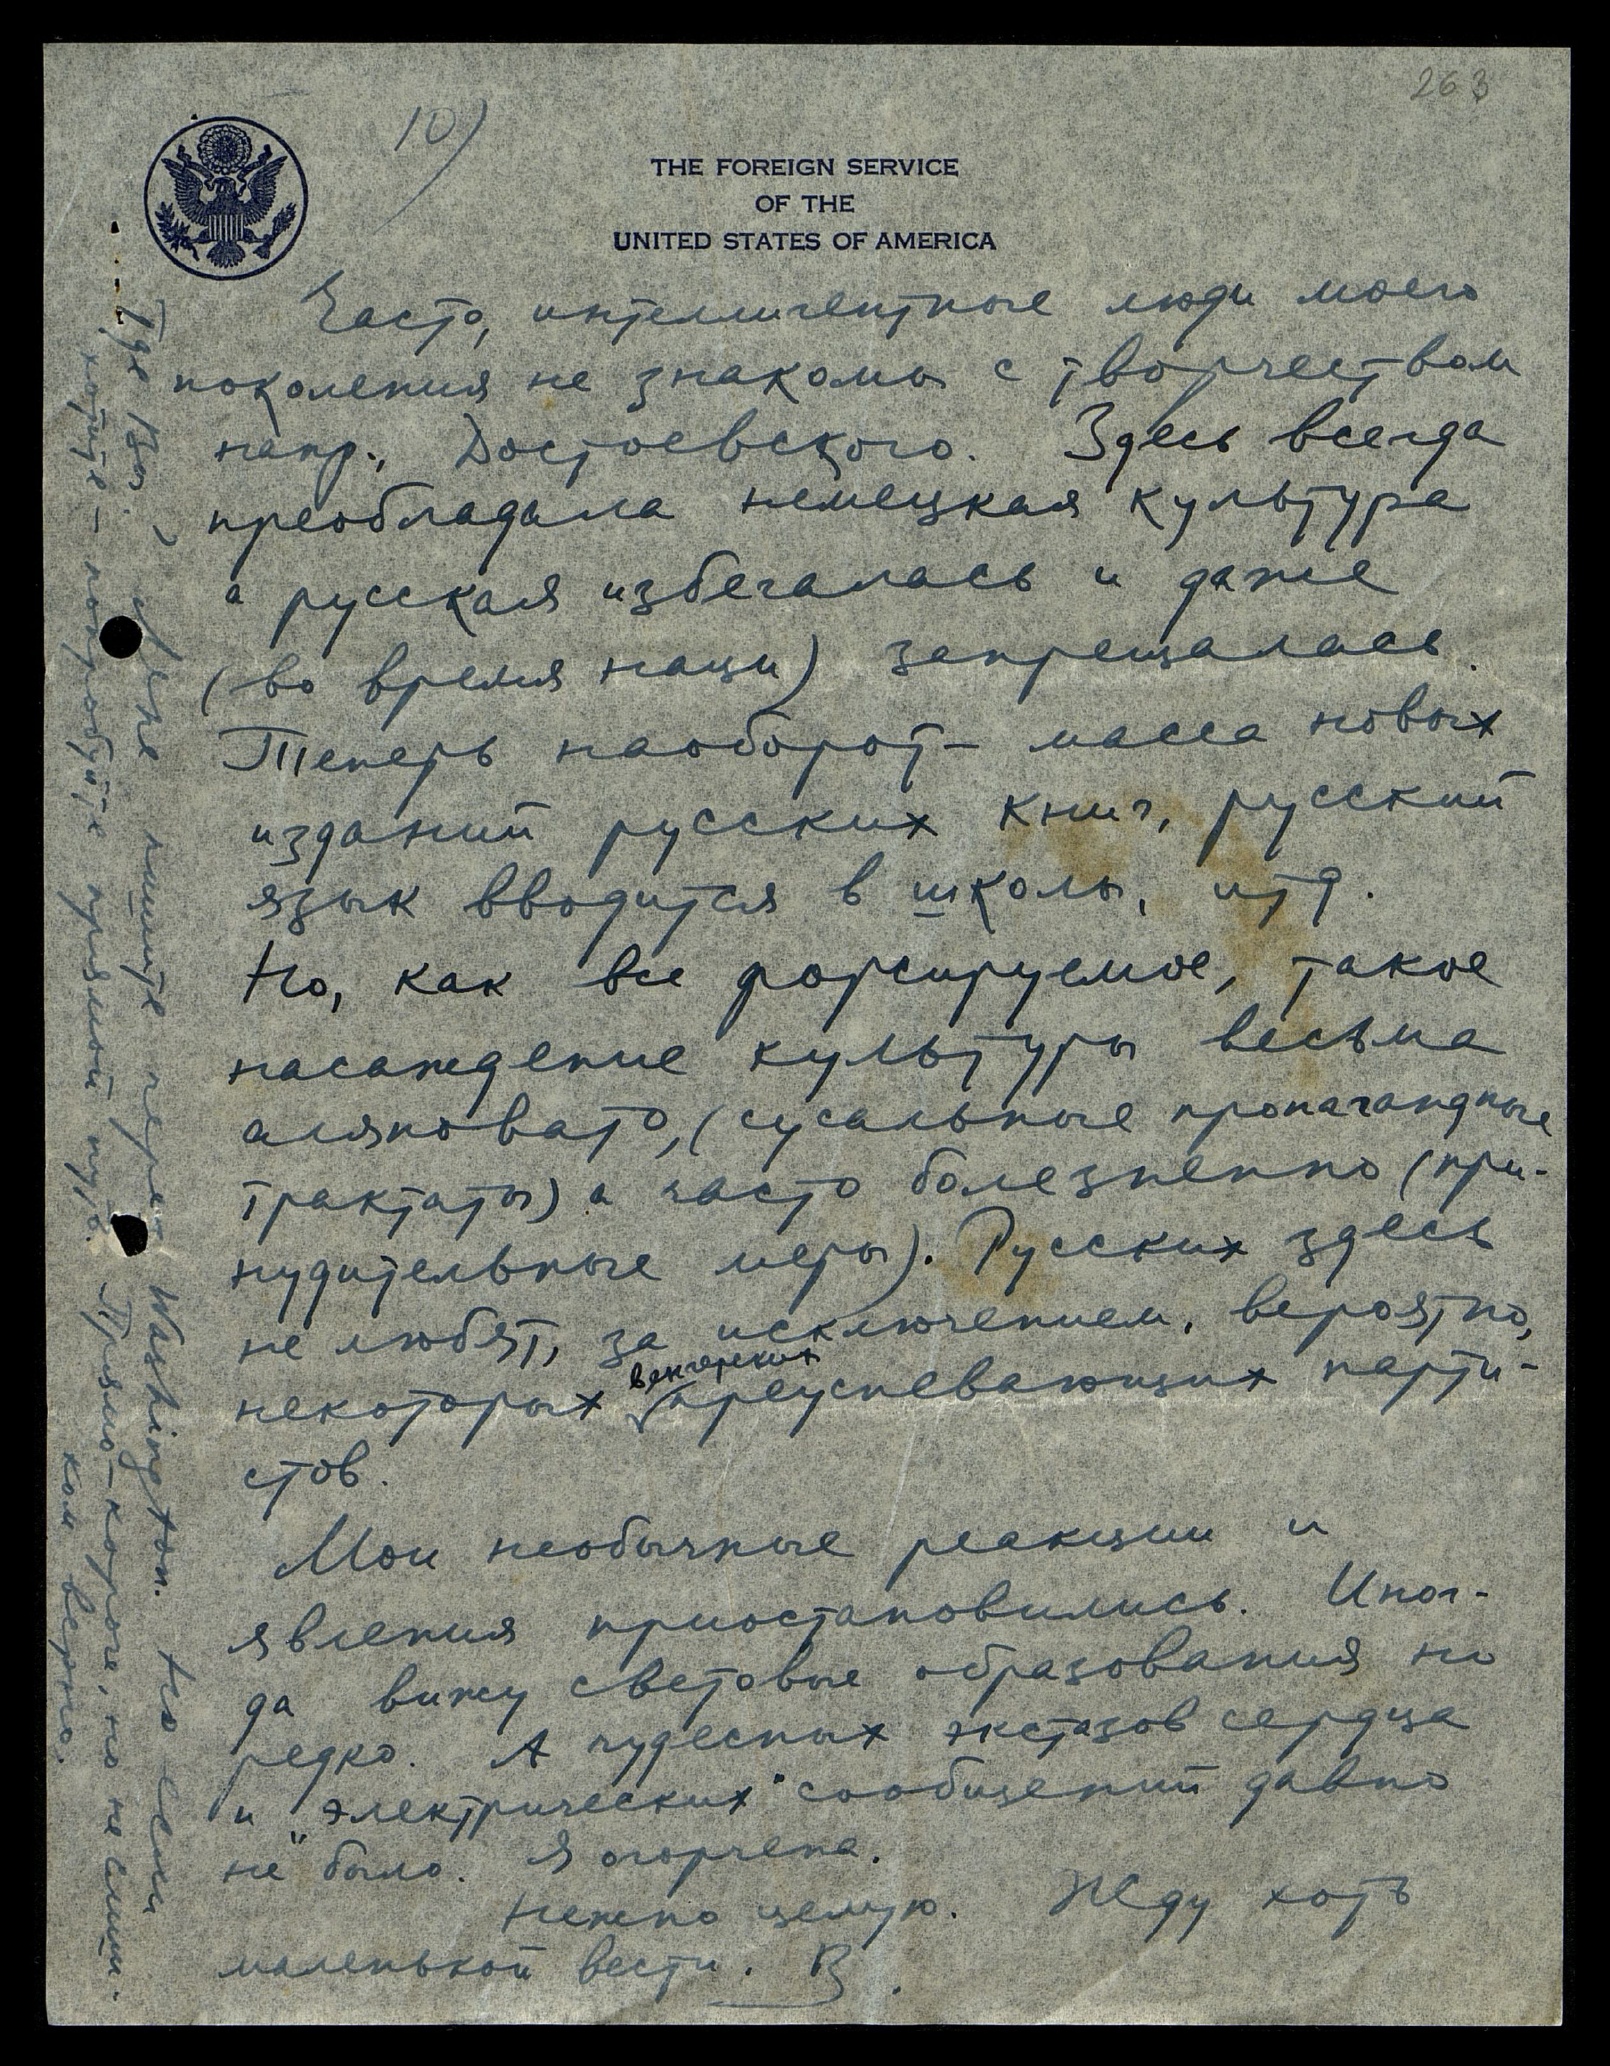 263
10)
THE FOREIGN SERVICE
OF THE
UNITED STATES OF AMERICA
Часто, интеллигентные люди моего
поколения не знакомы с творчеством
напр., Достоевского. Здесь всегда
преобладала немецкая культура
а русская избегалась и даже
(во время наци) запрещалась.
Теперь наоборот – масса новых
изданий русских книг, русский
язык вводится в школы, итд.
Но, как все форсируемое, такое
насаждение культуры весьма
аляповато, (сусальные пропагандные
трактаты) а часто болезненно (при-
нудительные меры). Русских здесь
не любят, за исключением, вероятно,
некоторых венгерских преуспевающих парти-
стов.
Мои необычные реакции и
явления приостановились. Иног-
да вижу световые образования но
редко. А чудесных экстазов сердца
и "электрических" сообщений давно
не было. Я огорчена.
Нежно целую. Жду хоть
маленькой вести. В.
Где Вы? пишите через Washington. Но если
хотите – попробуйте прямой путь. Прямо – короче, но не слиш-
ком верно.